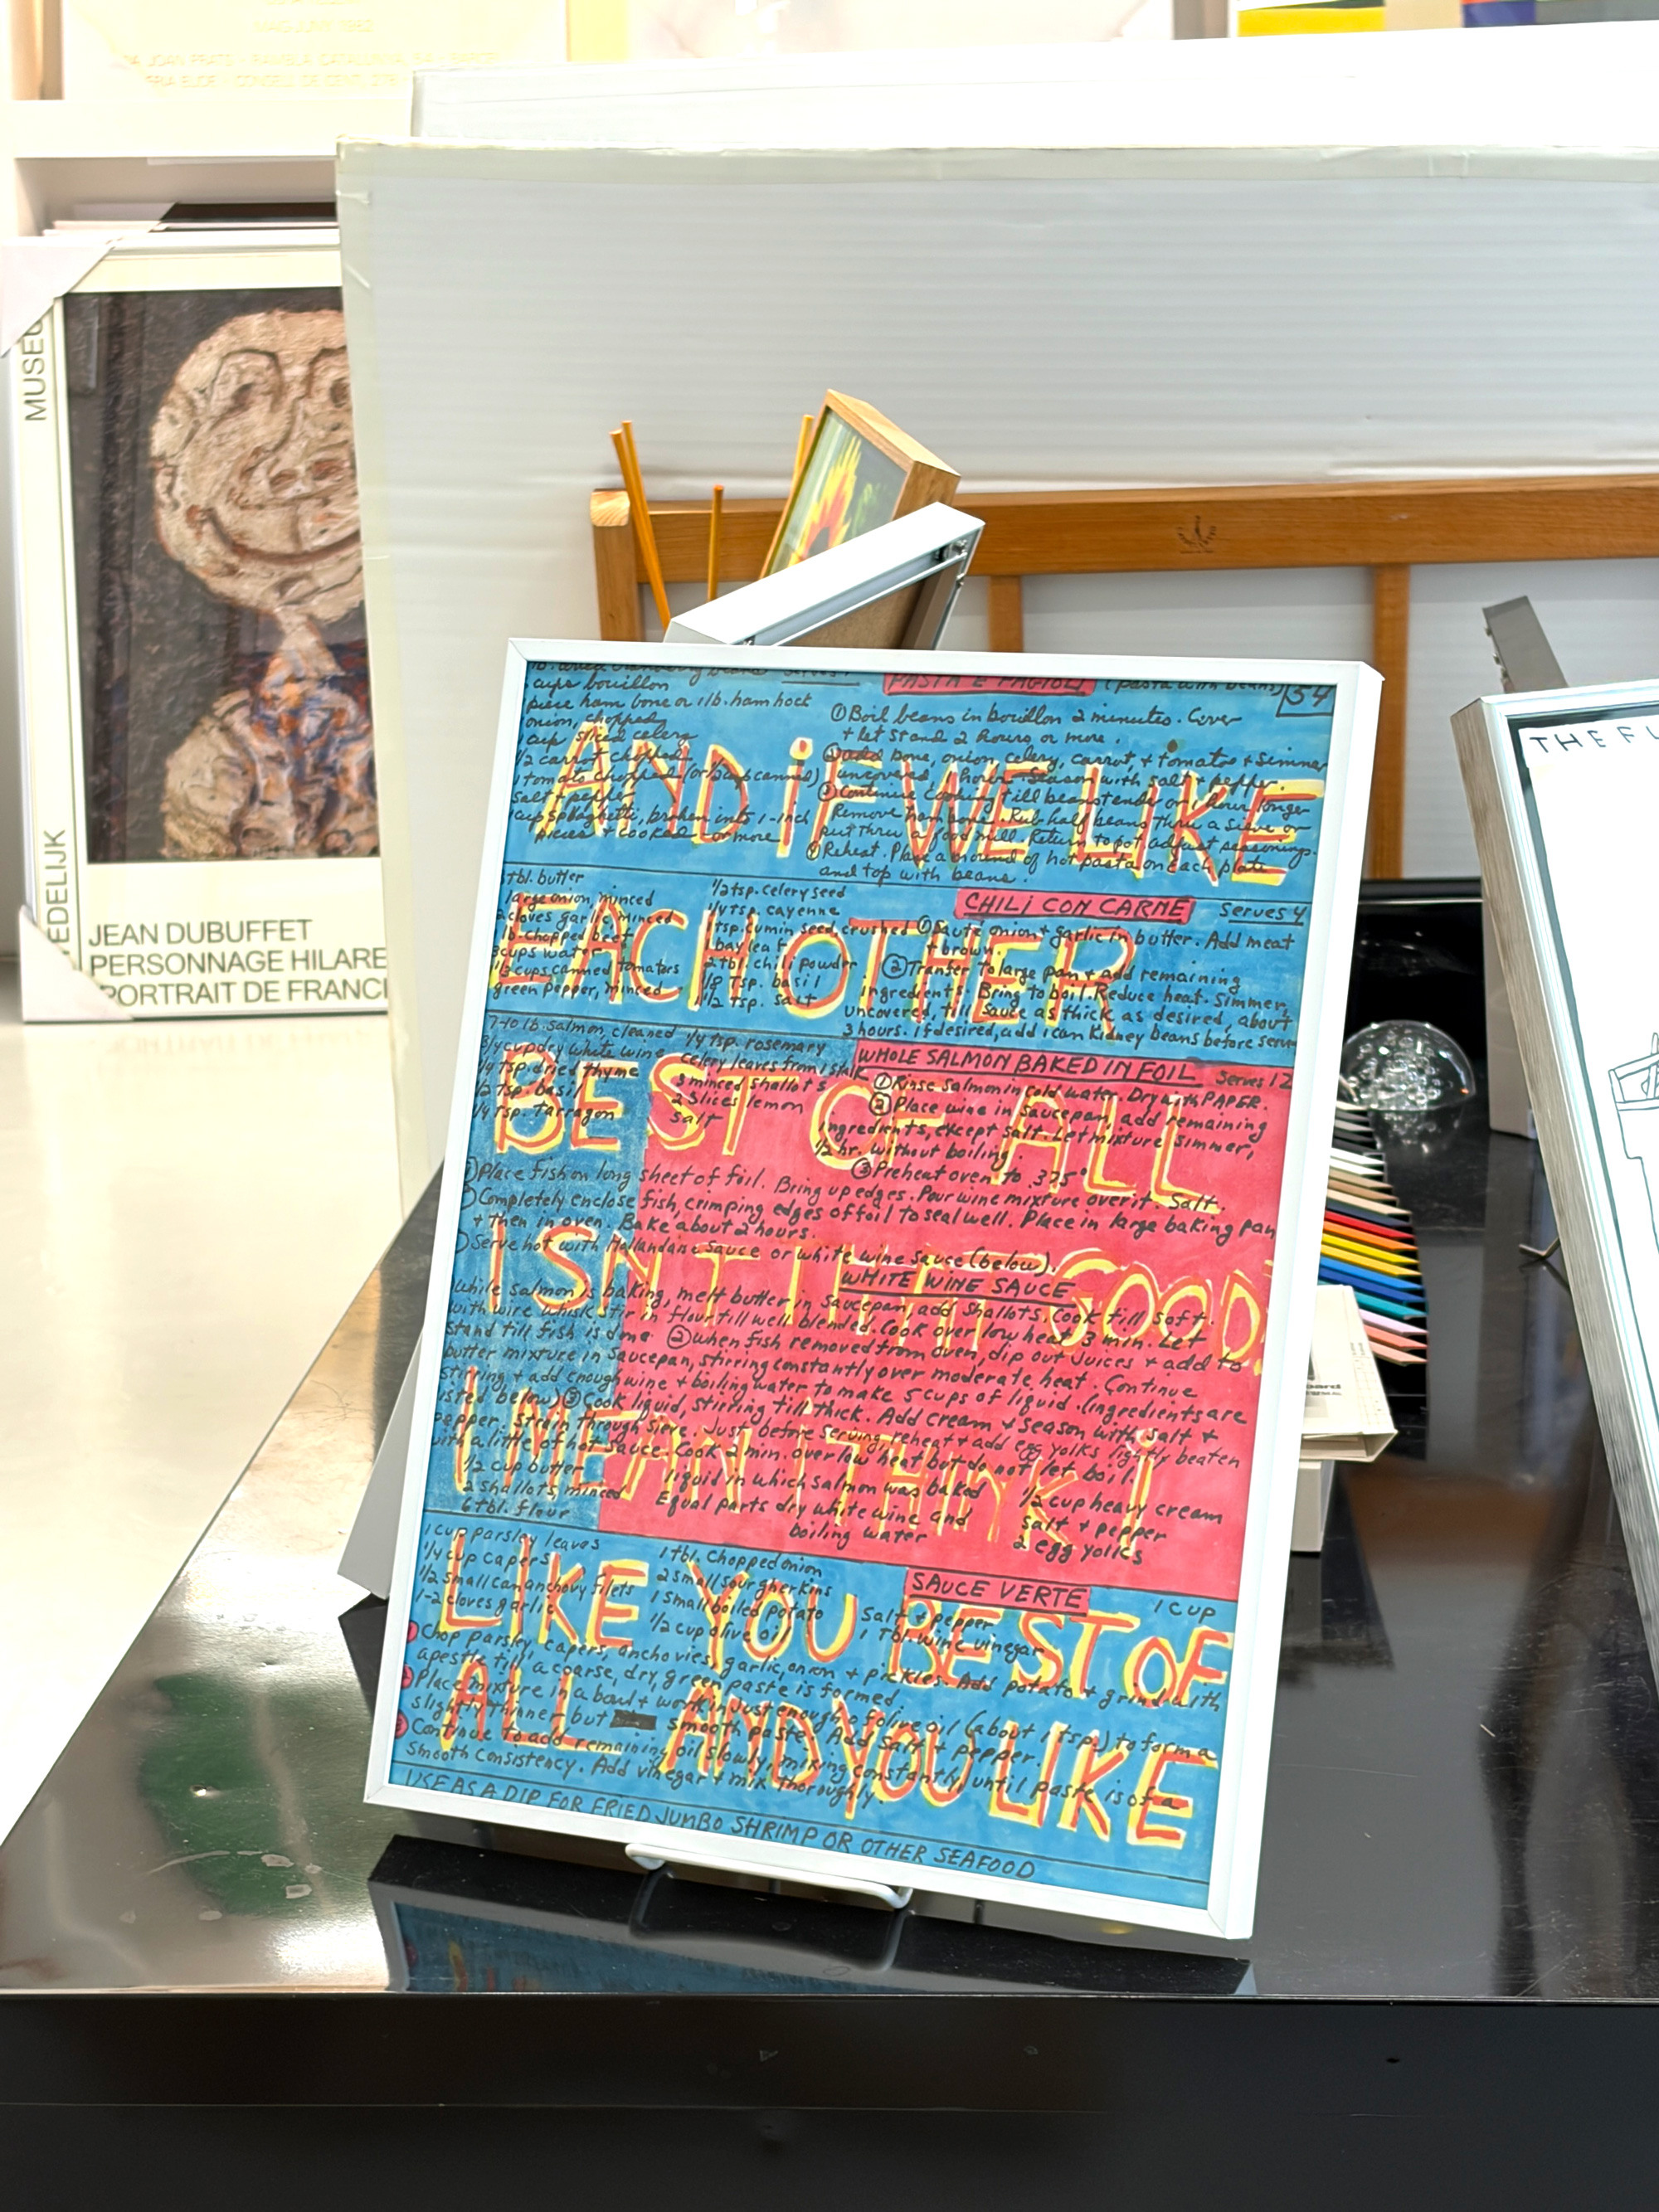 MAIG-JUNY 1982
MUSEU
EDELIJK
JEAN DUBUFFET
PERSONNAGE HILARE
PORTRAIT DE FRANCI
THE FL
PASTA E FAGIOLI (pasta with beans) 54
cups bouillon
piece ham bone or 1 lb. ham hock
onion, chopped
1 cup sliced celery
1/2 carrot chopped
1 tomato chopped (or 1/2 cup canned)
salt + pepper
1 cup spaghetti, broken into 1-inch
pieces + cooked or more
① Boil beans in bouillon 2 minutes. Cover
+ let stand 2 hours or more.
② Add bone, onion, celery, carrot, + tomato + simmer
uncovered, 1 hour. Season with salt + pepper.
③ Continue cooking till beans tender or 1 hour longer
Remove ham bone. Rub half beans thru a sieve or
put thru a food mill. Return to pot, adjust seasonings.
④ Reheat. Place a mound of hot pasta on each plate
and top with beans.
AND iF WE LIKE
CHILI CON CARNE Serves 4
tbl. butter
large onion, minced
2 cloves garlic minced
lb. chopped beef
3 cups water
1/3 cups canned tomatoes
green pepper, minced
1/2 tsp. celery seed
1/4 tsp. cayenne
1 tsp. cumin seed, crushed
1 bay leaf
2 tbl. chili powder
1/8 tsp. basil
1 1/2 tsp. salt
① Saute onion + garlic in butter. Add meat
+ brown.
② Tranfer to large pan + add remaining
ingredients. Bring to boil. Reduce heat. Simmer,
uncovered, till sauce as thick as desired, about
3 hours. If desired, add 1 can kidney beans before serv
EACH OTHER
WHOLE SALMON BAKED IN FOIL Serves 12
7-10 lb. salmon, cleaned
3/4 cup dry white wine
1/4 tsp. dried thyme
1/2 tsp. basil
1/4 tsp. tarragon
1/4 tsp. rosemary
celery leaves from 1 stalk
3 minced shallots
2 slices lemon
salt
① Rinse salmon in cold water. Dry with PAPER.
② Place wine in saucepan, add remaining
ingredients, except salt. Let mixture simmer,
1/2 hr. without boiling.
③ Preheat oven to 375°
BEST OF ALL
Place fish on long sheet of foil. Bring up edges. Pour wine mixture over it. Salt.
Completely enclose fish, crimping edges of foil to seal well. Place in large baking pan
+ then in oven. Bake about 2 hours.
Serve hot with Hollandaise Sauce or white wine sauce (below).
ISN'T THAT GOOD.
WHITE WINE SAUCE
While salmon is baking, melt butter in saucepan, add shallots. Cook till soft.
With wire whisk stir in flour till well blended. Cook over low heat 3 min. Let
stand till fish is done ② when fish removed from oven, dip out juices + add to
butter mixture in saucepan, stirring constantly over moderate heat. Continue
stirring + add enough wine + boiling water to make 5 cups of liquid. (ingredients are
isted below) ③ Cook liquid, stirring till thick. Add cream + season with salt +
pepper. Strain through sieve. Just before serving, reheat + add egg yolks lightly beaten
with a little of hot sauce. Cook 2 min. over low heat but do not let boil.
1/2 cup butter
2 shallots, minced
6 tbl. flour
liquid in which salmon was baked
Equal parts dry white wine and
boiling water
1/2 cup heavy cream
salt + pepper
2 egg yolks
I MEAN I THINK i
SAUCE VERTE 1 CUP
1 cup parsley leaves
1/4 cup capers
1/2 small can anchovy filets
1-2 cloves garlic
1 tbl. chopped onion
2 small sour gherkins
1 small boiled potato
1/2 cup olive oil
Salt + pepper
1 Tbl. wine vinegar
LIKE YOU BEST OF
Chop parsley, capers, anchovies, garlic, onion + pickles. Add potato + grind with
apestle till a coarse, dry, green paste is formed.
Place mixture in a bowl + work in just enough of olive oil (about 1 tsp.) to form a
slightly thinner but smooth paste. Add salt + pepper.
Continue to add remaining oil slowly, mixing constantly, until paste is of a
smooth consistency. Add vinegar + mix thoroughly.
ALL AND YOU LIKE
USE AS A DIP FOR FRIED JUMBO SHRIMP OR OTHER SEAFOOD